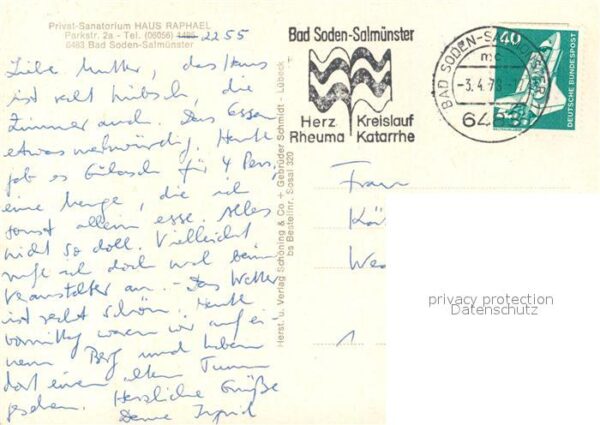 Privat-Sanatorium HAUS RAPHAEL
Parkstr. 2a - Tel. (06056) 1495 2255
6483 Bad Soden-Salmünster
Liebe Mutter, das Haus
ist recht hübsch, die
Zimmer auch. Das Essen
etwas merkwürdig. Heute
gab es Gulasch für 4 Pers.
eine Menge, die ich
sonst allein esse. Alles
nicht so doll. Vielleicht
ruft ich doch mal beim
Veranstalter an. - Das Wetter
ist recht schön. Heute
vormittag waren wir auf ei-
nem Berg und haben
dort einen alten Turm
gesehen. Herzliche Grüße
Deine Ingrid
Herst. u. Verlag Schöning & Co + Gebrüder Schmidt - Lübeck
bs Bestellnr. Sosal 320
Bad Soden-Salmünster
Herz Kreislauf
Rheuma Katarrhe
BAD SODEN-SALMÜNSTER
mc
-3.4.78
6483
40
DEUTSCHE BUNDESPOST
Frau
Kä
We
1
privacy protection
Datenschutz